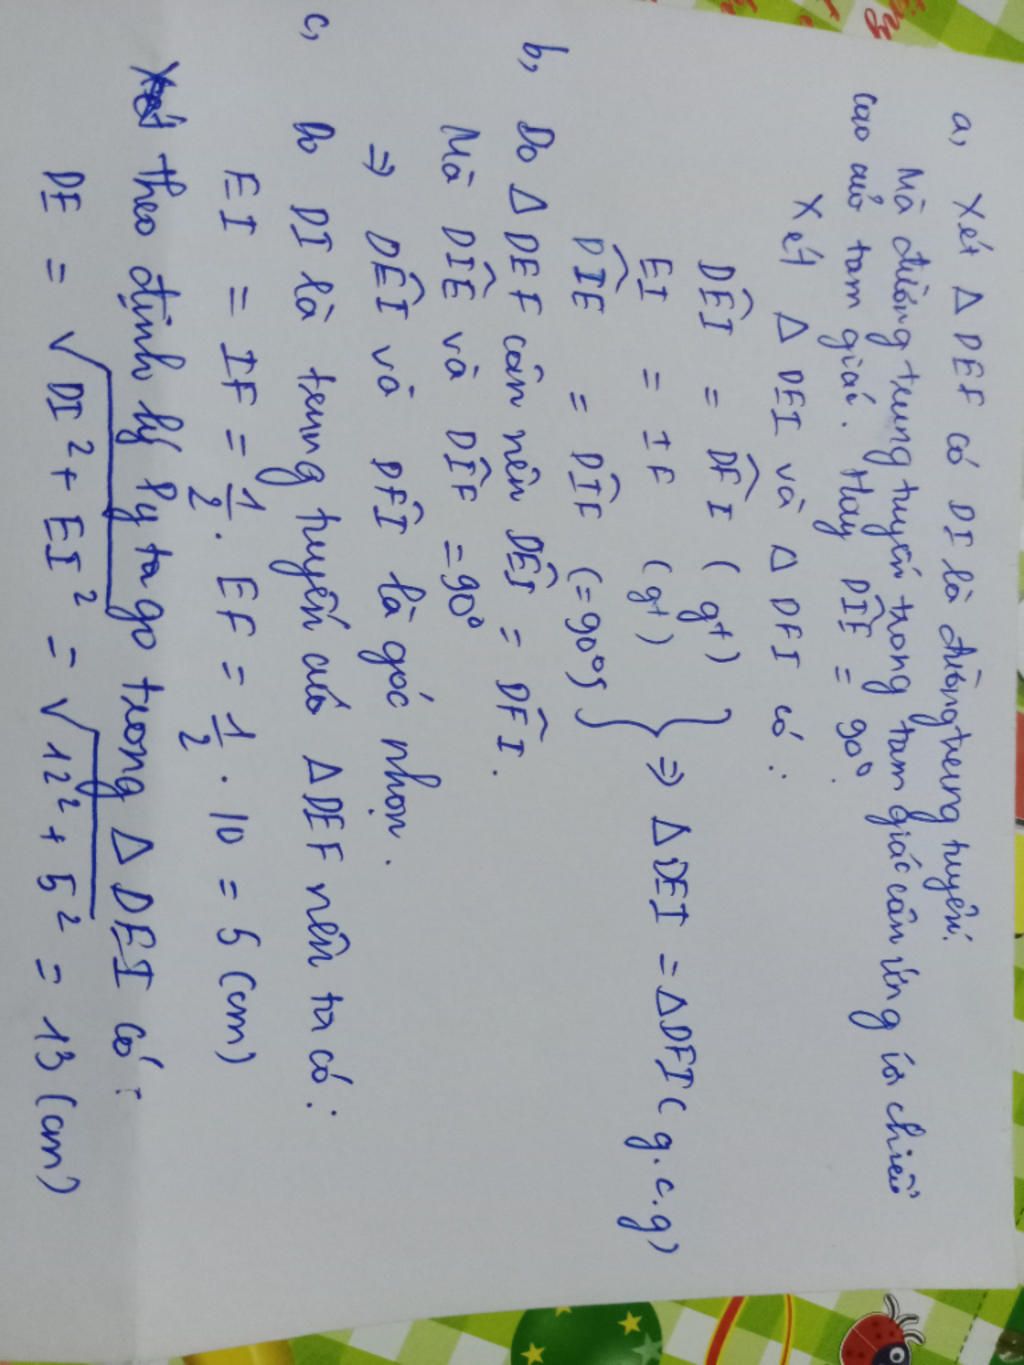 a, Xét Δ DEF có DI là đường trung tuyến.
Mà đường trung tuyến trong tam giác cân ứng là chiều
cao của tam giác. Hay DÎE = 90°.
Xét Δ DEI và Δ DFI có:
DÊI = DF̂I (gt)
EI = IF (gt)
DÎE = DÎF (= 90°) } ⇒ Δ DEI = Δ DFI (g.c.g)
b, Do Δ DEF cân nên DÊI = DF̂I.
Mà DÎE và DÎF = 90°
⇒ DÊI và DF̂I là góc nhọn.
c, Do DI là trung tuyến của Δ DEF nên ta có:
EI = IF = 1/2 . EF = 1/2 . 10 = 5 (cm)
theo định lý Py ta go trong Δ DEI có:
DE = √DI² + EI² = √12² + 5² = 13 (cm)